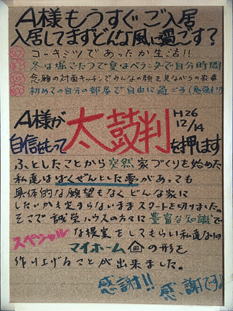 A様もうすぐご入居
入居してますどんな風に過ごす?
コーキミツであったか生活!!
冬は堀こたつで夏はベランダで自分時間
念願の対面キッチンでみんなの顔を見ながらの家事
初めての自分の部屋で自由に過ごす
A様が
H26
12/14
自信をもって
太鼓判
を押します
ふとしたことから突然家づくりを始めた
私達はばくぜんとした夢があっても
具体的な願望もなくどんな家に
したいかも定まらないままスタートを切りました。
そこで誠栄ハウスの方々に豊富な知識で
スペシャルな提案をしてもらい私達なりの
マイホームの形を
作り上げることが出来ました。
感謝!!
感謝です